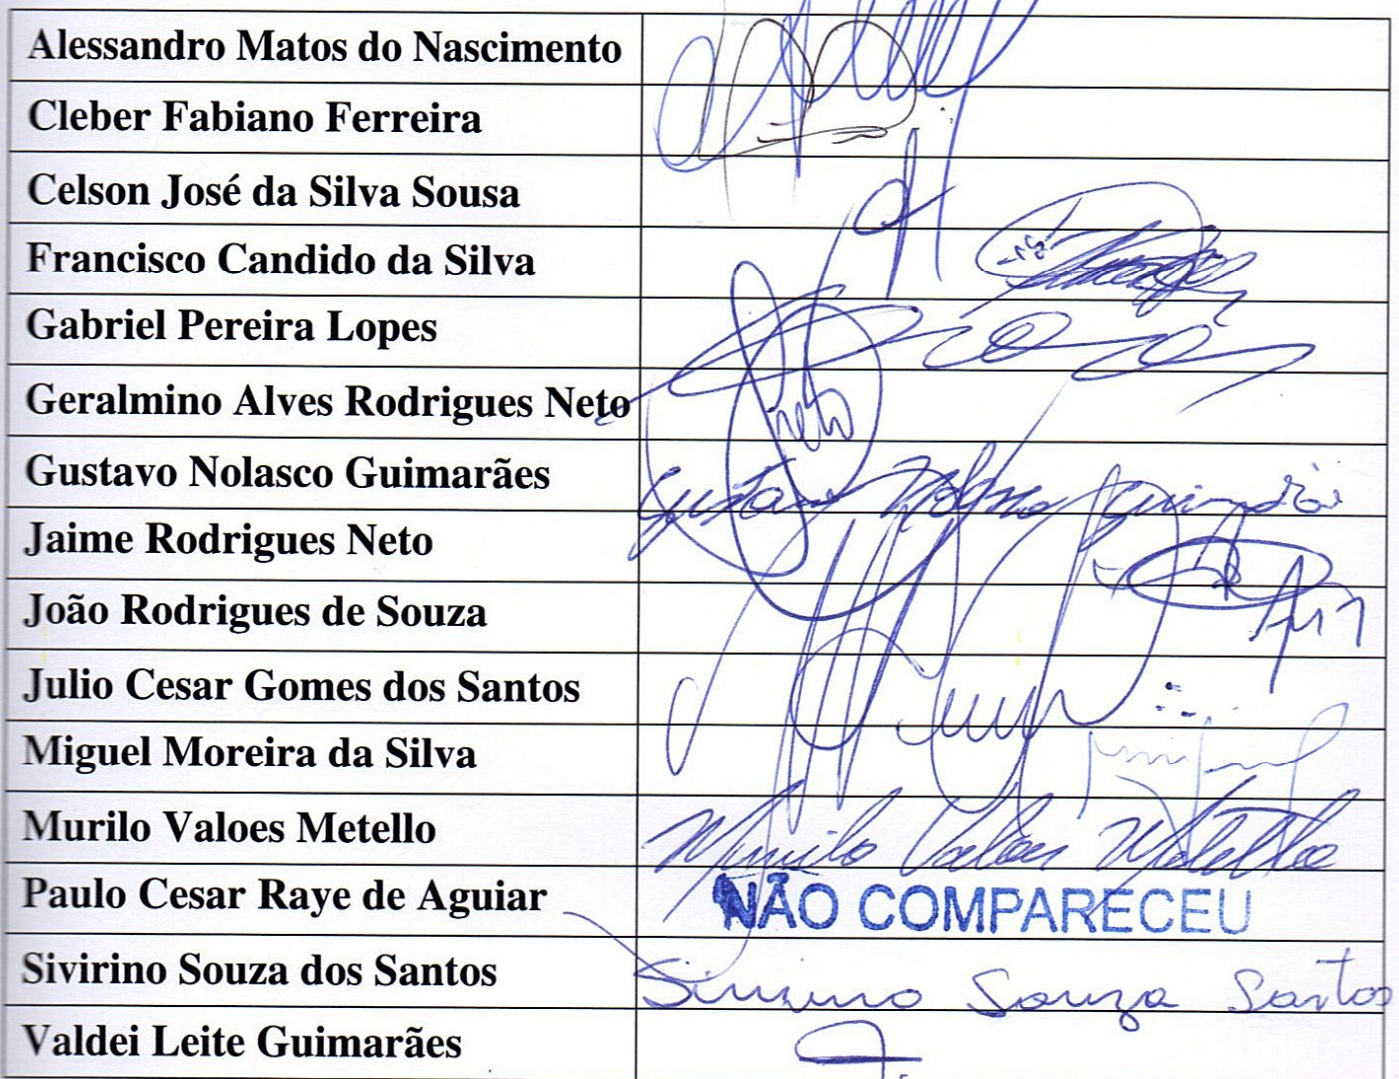 Alessandro Matos do Nascimento
Cleber Fabiano Ferreira
Celson José da Silva Sousa
Francisco Candido da Silva
Gabriel Pereira Lopes
Geralmino Alves Rodrigues Neto
Neto
Gustavo Nolasco Guimarães Gustavo Nolasco Guimarães
Jaime Rodrigues Neto
João Rodrigues de Souza
Julio Cesar Gomes dos Santos
Miguel Moreira da Silva
Murilo Valoes Metello Murilo Valoes Metello
Paulo Cesar Raye de Aguiar NÃO COMPARECEU
Sivirino Souza dos Santos Sivirino Souza Santos
Valdei Leite Guimarães